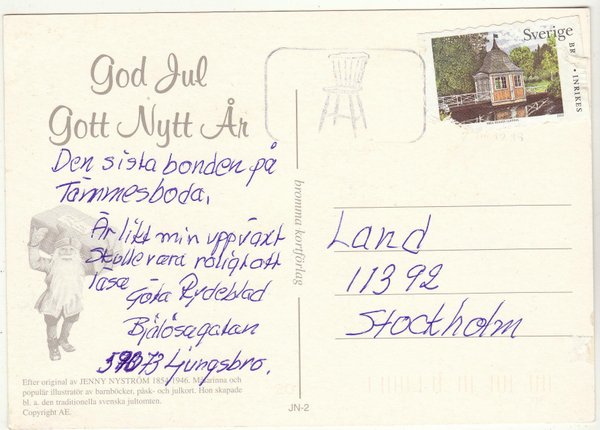 God Jul
Gott Nytt År
Den sista bonden på
Tämmesboda.
Är likt min uppväxt
Skulle vara roligt att
läsa
Göta Rydeblad
Bjälösagatan
59073 Ljungsbro.
Efter original av JENNY NYSTRÖM 1854-1946. Målarinna och
populär illustratör av barnböcker, påsk- och julkort. Hon skapade
bl. a. den traditionella svenska jultomten.
Copyright AE.
bromma kortförlag
JN-2
Sverige
BREV • INRIKES
Land
11392
Stockholm